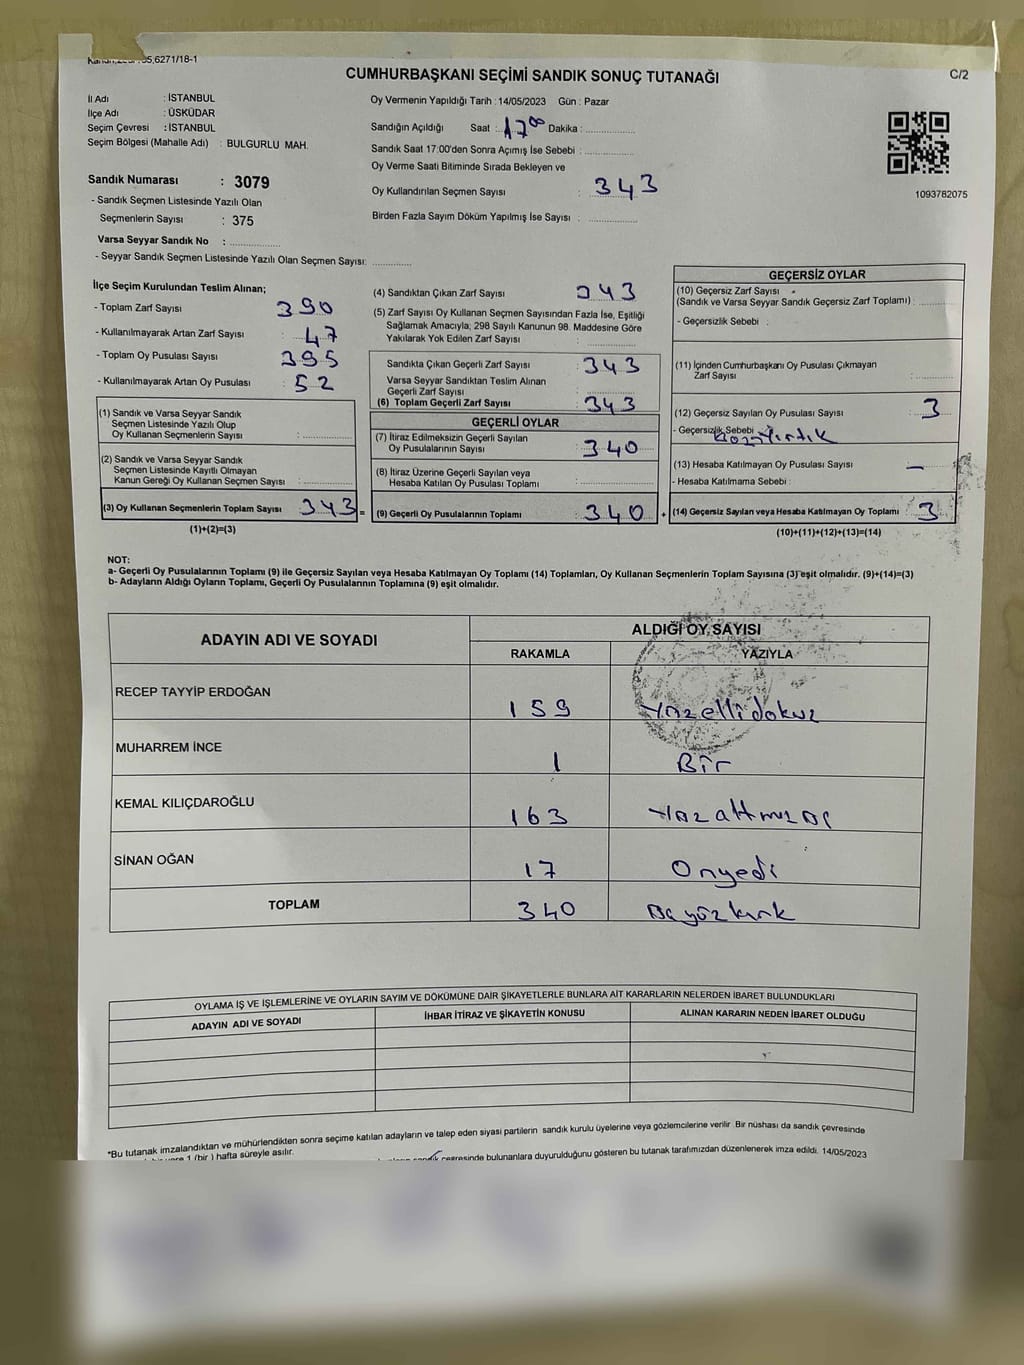 CUMHURBAŞKANI SEÇİMİ SANDIK SONUÇ TUTANAĞI
C/2
İl Adı : İSTANBUL
İlçe Adı : ÜSKÜDAR
Seçim Çevresi : İSTANBUL
Seçim Bölgesi (Mahalle Adı) : BULGURLU MAH.
Sandık Numarası : 3079
- Sandık Seçmen Listesinde Yazılı Olan
Seçmenlerin Sayısı : 375
Varsa Seyyar Sandık No :
- Seyyar Sandık Seçmen Listesinde Yazılı Olan Seçmen Sayısı:
Oy Vermenin Yapıldığı Tarih : 14/05/2023 Gün : Pazar
Sandığın Açıldığı Saat : 17 00 Dakika :
Sandık Saat 17:00'den Sonra Açımış İse Sebebi :
Oy Verme Saati Bitiminde Sırada Bekleyen ve
Oy Kullandırılan Seçmen Sayısı : 343
Birden Fazla Sayım Döküm Yapılmış İse Sayısı :
1093762075
İlçe Seçim Kurulundan Teslim Alınan;
- Toplam Zarf Sayısı : 390
- Kullanılmayarak Artan Zarf Sayısı : 47
- Toplam Oy Pusulası Sayısı : 395
- Kullanılmayarak Artan Oy Pusulası : 52
(1) Sandık ve Varsa Seyyar Sandık
Seçmen Listesinde Yazılı Olup
Oy Kullanan Seçmenlerin Sayısı :
(2) Sandık ve Varsa Seyyar Sandık
Seçmen Listesinde Kayıtlı Olmayan
Kanun Gereği Oy Kullanan Seçmen Sayısı :
(3) Oy Kullanan Seçmenlerin Toplam Sayısı : 343 =
(1)+(2)=(3)
(4) Sandıktan Çıkan Zarf Sayısı : 343
(5) Zarf Sayısı Oy Kullanan Seçmen Sayısından Fazla İse, Eşitliği
Sağlamak Amacıyla; 298 Sayılı Kanunun 98. Maddesine Göre
Yakılarak Yok Edilen Zarf Sayısı :
Sandıkta Çıkan Geçerli Zarf Sayısı : 343
Varsa Seyyar Sandıktan Teslim Alınan
Geçerli Zarf Sayısı :
(6) Toplam Geçerli Zarf Sayısı : 343
GEÇERLİ OYLAR
(7) İtiraz Edilmeksizin Geçerli Sayılan
Oy Pusulalarının Sayısı : 340
(8) İtiraz Üzerine Geçerli Sayılan veya
Hesaba Katılan Oy Pusulası Toplamı :
(9) Geçerli Oy Pusulalarının Toplamı : 340 +
GEÇERSİZ OYLAR
(10) Geçersiz Zarf Sayısı
(Sandık ve Varsa Seyyar Sandık Geçersiz Zarf Toplamı) :
- Geçersizlik Sebebi :
(11) İçinden Cumhurbaşkanı Oy Pusulası Çıkmayan
Zarf Sayısı :
(12) Geçersiz Sayılan Oy Pusulası Sayısı : 3
- Geçersizlik Sebebi :
(13) Hesaba Katılmayan Oy Pusulası Sayısı : –
- Hesaba Katılmama Sebebi :
(14) Geçersiz Sayılan veya Hesaba Katılmayan Oy Toplamı : 3
(10)+(11)+(12)+(13)=(14)
NOT:
a- Geçerli Oy Pusulalarının Toplamı (9) ile Geçersiz Sayılan veya Hesaba Katılmayan Oy Toplamı (14) Toplamları, Oy Kullanan Seçmenlerin Toplam Sayısına (3) eşit olmalıdır. (9)+(14)=(3)
b- Adayların Aldığı Oyların Toplamı, Geçerli Oy Pusulalarının Toplamına (9) eşit olmalıdır.
ADAYIN ADI VE SOYADI ALDIĞI OY SAYISI
RAKAMLA YAZIYLA
RECEP TAYYİP ERDOĞAN 159 Yüzellidokuz
MUHARREM İNCE 1 Bir
KEMAL KILIÇDAROĞLU 163 Yüzaltmışüç
SİNAN OĞAN 17 Onyedi
TOPLAM 340 Üçyüzkırk
OYLAMA İŞ VE İŞLEMLERİNE VE OYLARIN SAYIM VE DÖKÜMÜNE DAİR ŞİKAYETLERLE BUNLARA AİT KARARLARIN NELERDEN İBARET BULUNDUKLARI
ADAYIN ADI VE SOYADI İHBAR İTİRAZ VE ŞİKAYETİN KONUSU ALINAN KARARIN NEDEN İBARET OLDUĞU
*Bu tutanak imzalandıktan ve mühürlendikten sonra seçime katılan adayların ve talep eden siyasi partilerin sandık kurulu üyelerine veya gözlemcilerine verilir Bir nüshası da sandık çevresinde
1 (bir ) hafta süreyle asılır.
çevresinde bulunanlara duyurulduğunu gösteren bu tutanak tarafımızdan düzenlenerek imza edildi. 14/05/2023